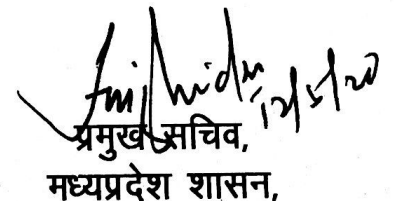 12/5/20
प्रमुख सचिव,
मध्यप्रदेश शासन,